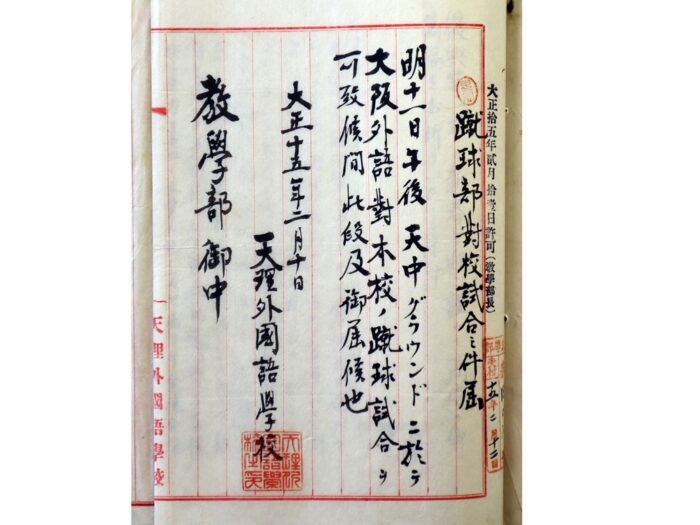 大正拾五年貳月拾壹日許可（教學部長）
十五年二月十二日
蹴球部對校試合ニ件届
明十一日午後天中グラウンドニ於テ
大阪外語對本校ノ蹴球試合ヲ
可致候間此段及御届候也
大正十五年二月十日
天理外國語學校
教學部御中
天理外國語學校